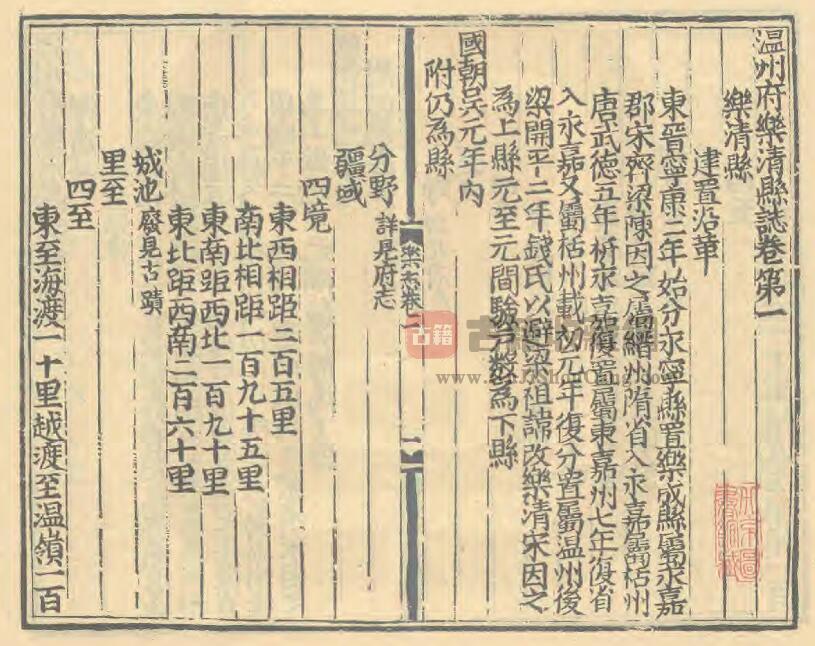 温州府樂清縣誌卷第一
樂清縣
建置沿革
東晉寧康二年始分永寧縣置樂成縣屬永嘉
郡宋齊梁陳因之屬縉州隋省入永嘉屬栝州
唐武德五年析永嘉復置屬東嘉州七年復省
入永嘉又屬栝州載初元年復分置屬温州後
梁開平二年錢氏以避梁祖諱改樂清宋因之
為上縣元至元間驗户數為下縣
國朝吳元年内
附仍為縣
樂志卷一
分野 詳見府志
疆域
四境
東西相距二百五里
南北相距一百九十五里
東南距西北一百九十里
東北距西南二百六十里
城池 廢見古蹟
里至
四至
東至海渡一十里越渡至温嶺一百
古籍